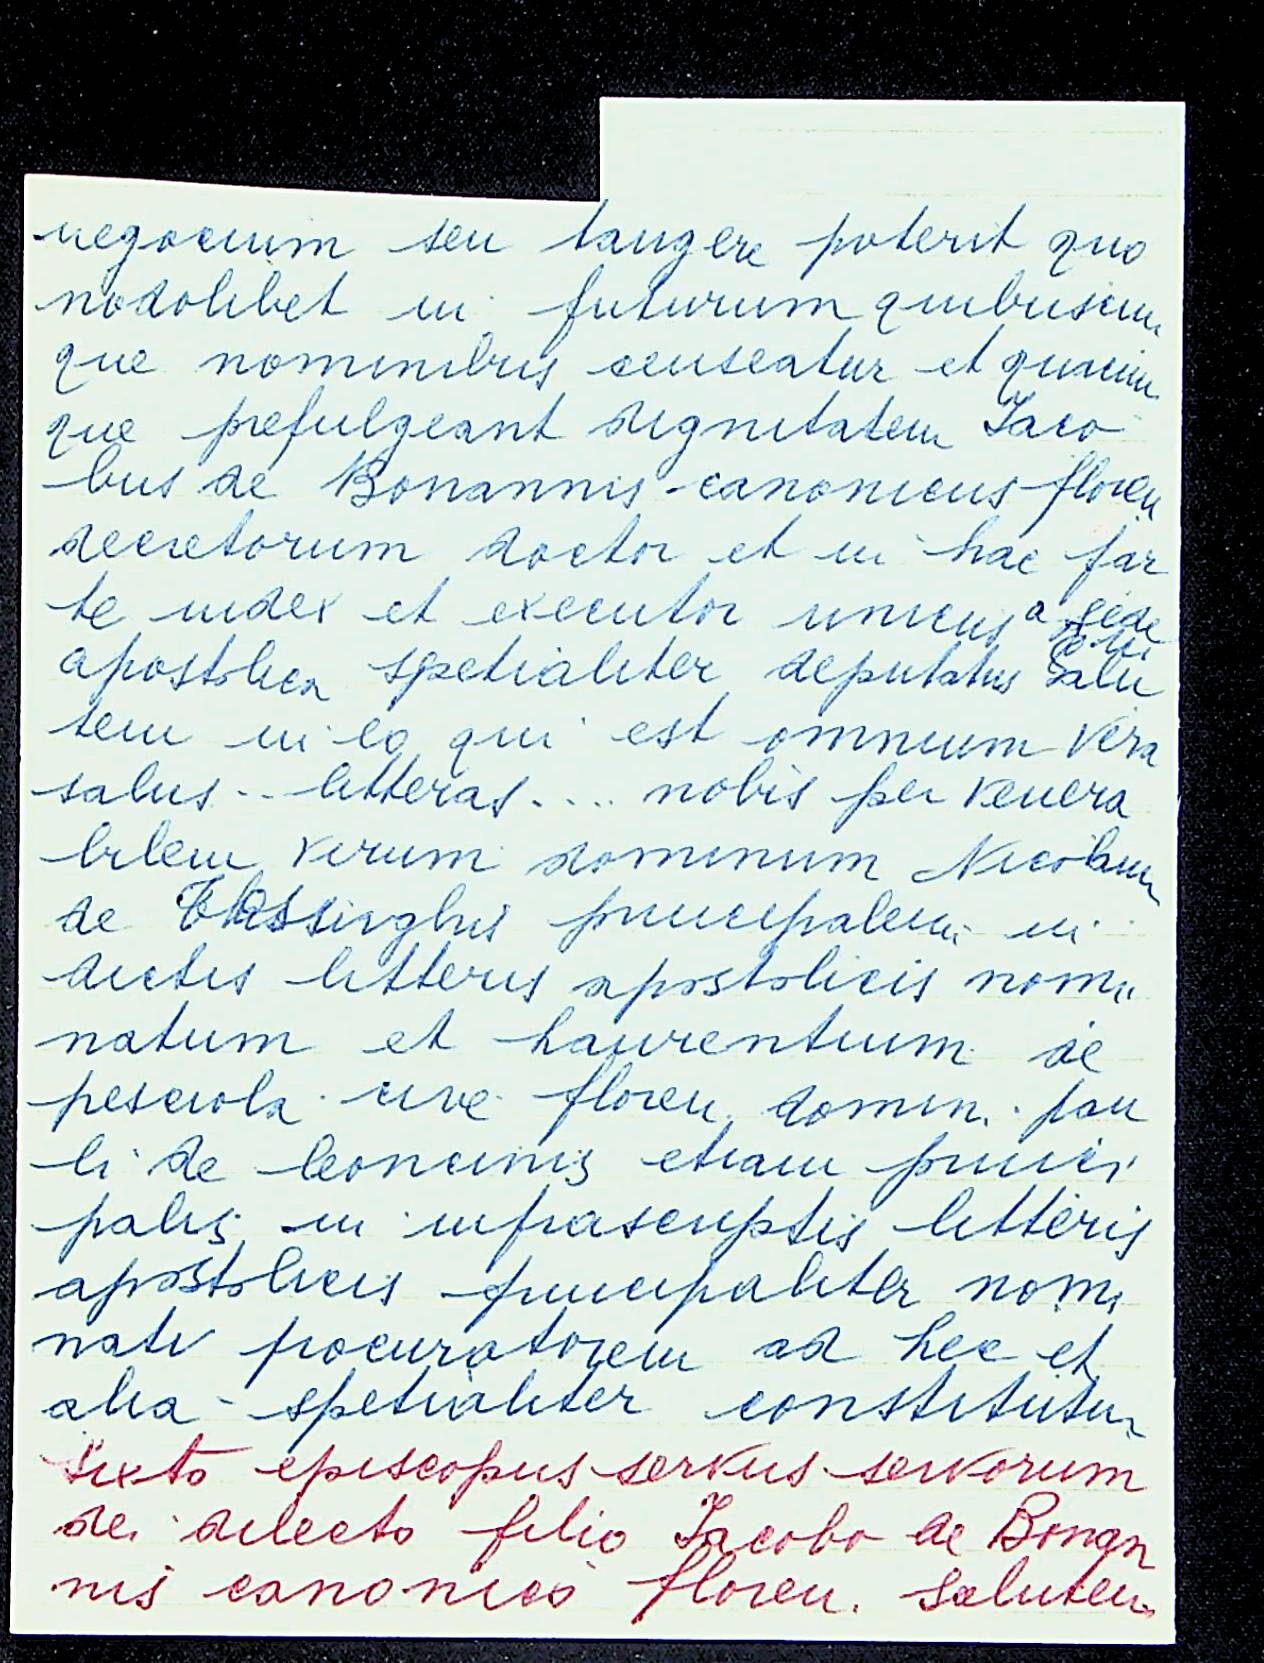 negocium seu tangere poterit quo
modolibet in futurum quibuscum
que nominibus censeatur et quacun
que prefulgeant dignitatem Iaco
bus de Bonannis canonicus floren
decretorum doctor et in hac par
te iudex et executor unicus a sede
apostolica spetialiter deputatus Salu
tem in eo qui est omnium vera
salus .. litteras .... nobis per venera
bilem virum dominum Nicolaum
de principalem in
dictis litteris apostolicis nomi
natum et Laurentium de
pesciola cive floren. domin. pau
li de leoncinis etiam princi
palis in infrascriptis litteris
apostolicis principaliter nomi
nati procuratorem ad hec et
alia spetialiter constitutum
Sixto episcopus servus servorum
dei dilecto filio Iacobo de Bonan
nis canonico floren. Salutem